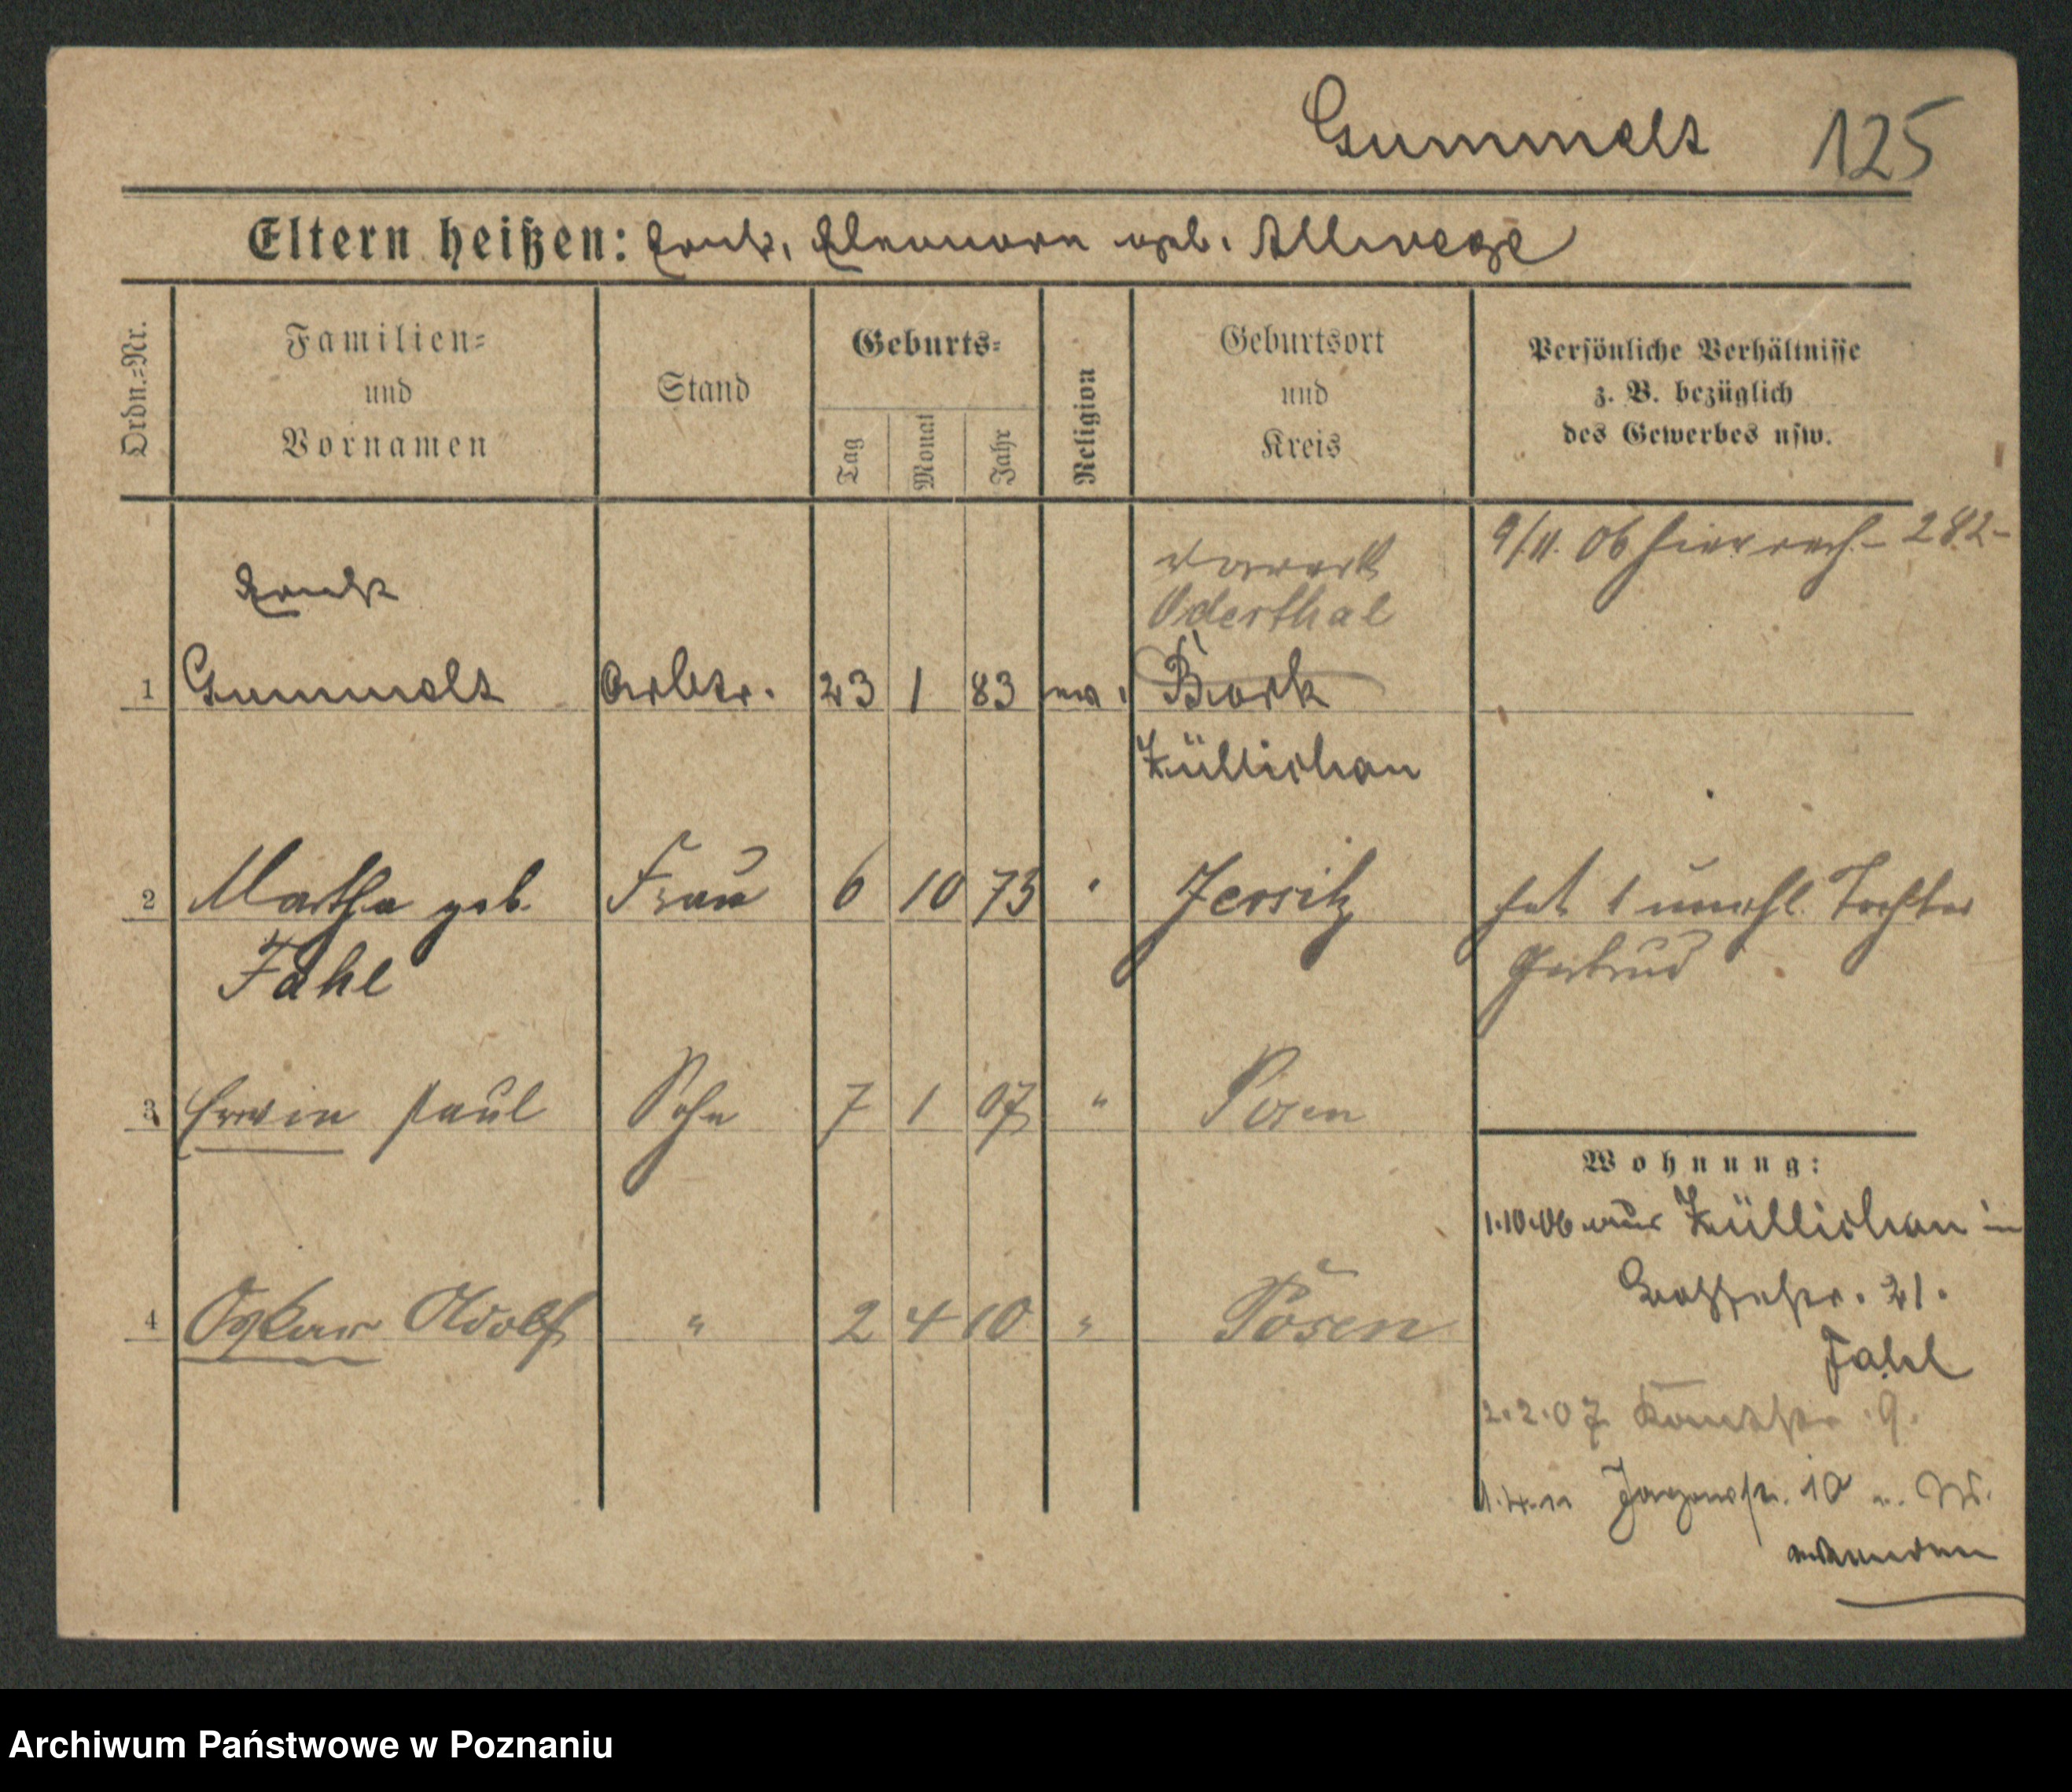 Gummelt 125
Eltern heißen: geb. Allwege
Ordn.-Nr.
Familien-
und
Vornamen
Stand
Geburts-
Tag
Monat
Jahr
Religion
Geburtsort
und
Kreis
Persönliche Verhältnisse
z. B. bezüglich
des Gewerbes usw.
9/11. 06 282
Oderthal
1 Gummelt Arbtr. 23 1 83 ev. Bork
Züllichau
2 Martha geb. Frau 6 10 73 " Jersitz hat 1 unehl. Tochter
Fahl Gertrud
3 Erwin Paul Sohn 7 1 07 " Posen
Wohnung:
1.10.06 aus Züllichau in
21.
4 Oskar Adolf " 2 4 10 " Posen
Fahl
2.2.07 9.
1.4.11 10
Archiwum Państwowe w Poznaniu